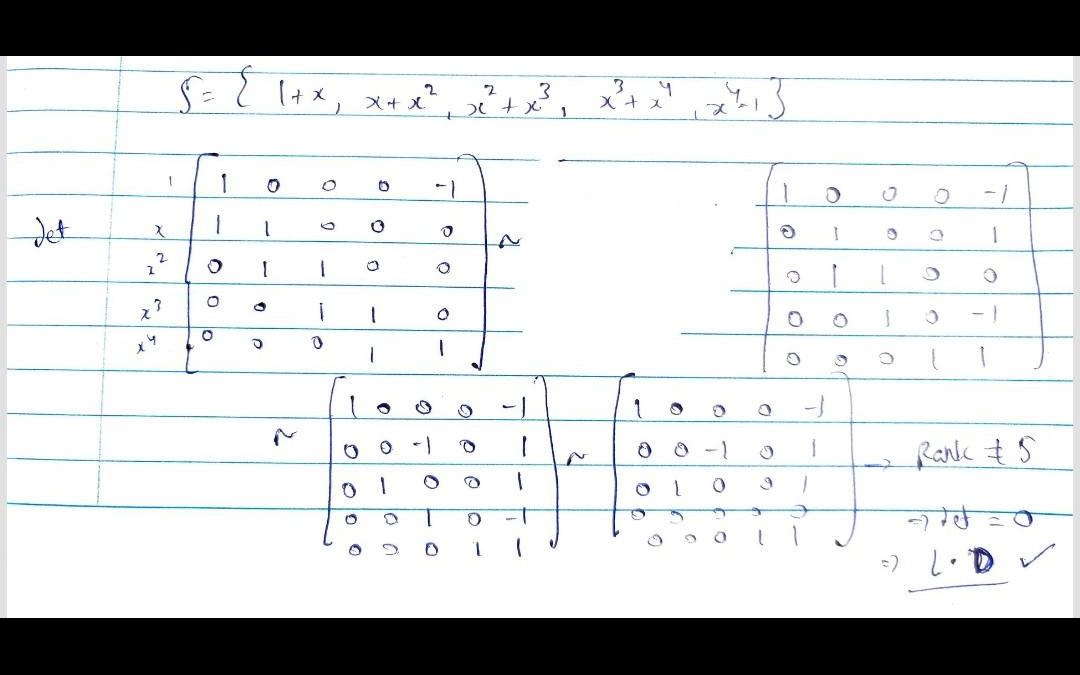 S = { 1+x, x+x², x²+x³, x³+x⁴, x⁴-1}
det
1 [ 1 0 0 0 -1 ]
x [ 1 1 0 0 0 ]
x² [ 0 1 1 0 0 ]
x³ [ 0 0 1 1 0 ]
x⁴ [ 0 0 0 1 1 ]
~
[ 1 0 0 0 -1 ]
[ 0 1 0 0 1 ]
[ 0 1 1 0 0 ]
[ 0 0 1 0 -1 ]
[ 0 0 0 1 1 ]
~
[ 1 0 0 0 -1 ]
[ 0 0 -1 0 1 ]
[ 0 1 0 0 1 ]
[ 0 0 1 0 -1 ]
[ 0 0 0 1 1 ]
~
[ 1 0 0 0 -1 ]
[ 0 0 -1 0 1 ]
[ 0 1 0 0 1 ]
[ 0 0 0 0 0 ]
[ 0 0 0 1 1 ]
→ Rank ≠ 5
⇒ det = 0
⇒ L.D ✓